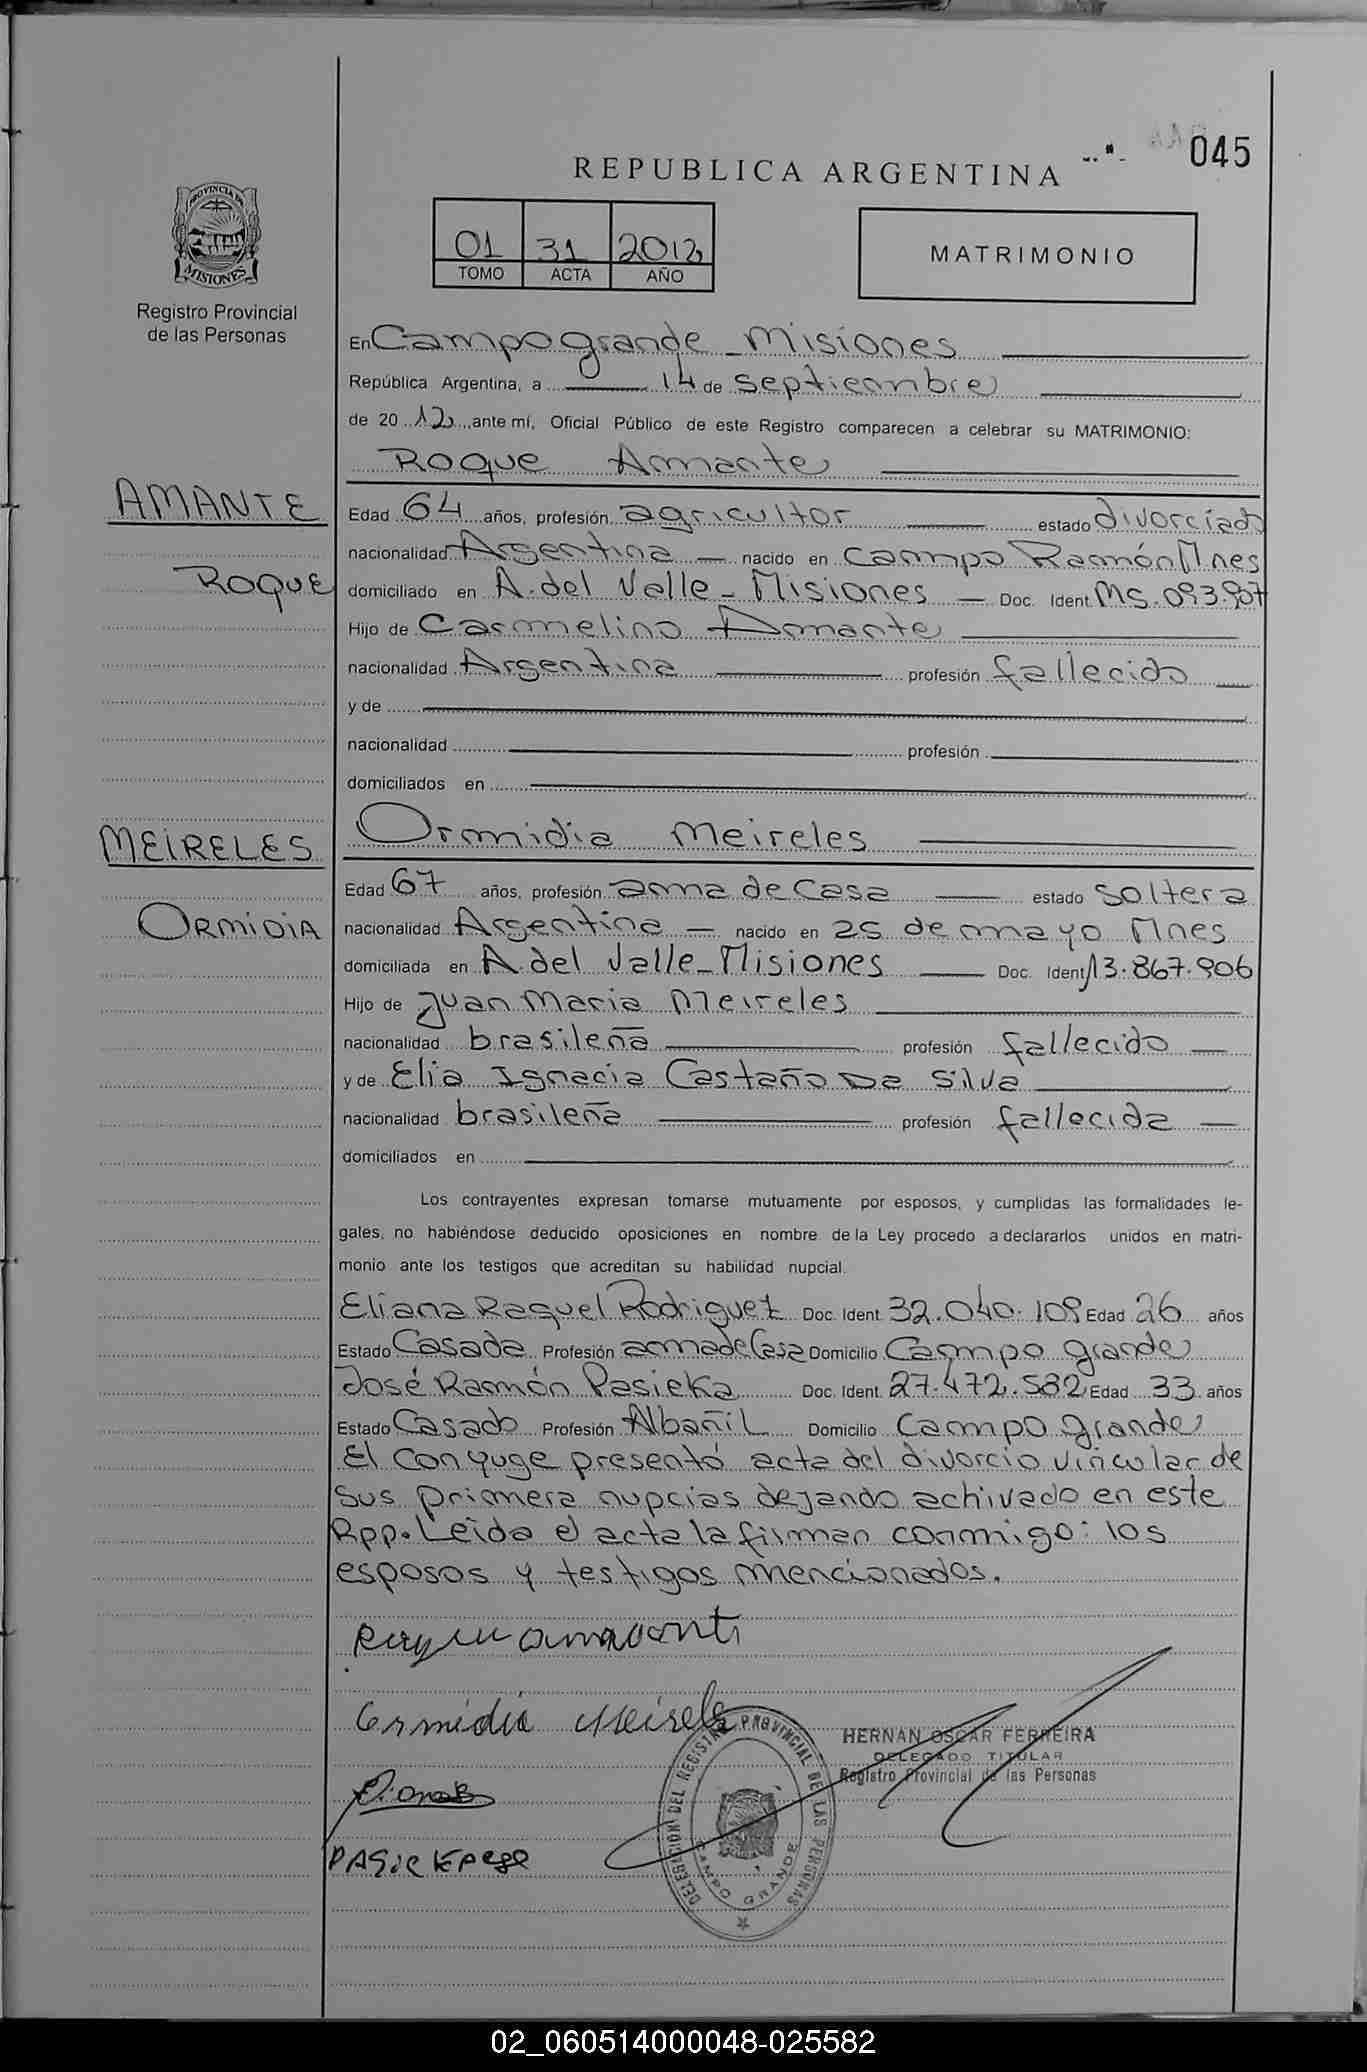 045
REPUBLICA ARGENTINA
PROVINCIA DE
MISIONES
Registro Provincial
de las Personas
01 31 2012
TOMO ACTA AÑO
MATRIMONIO
En Campo grande - Misiones
República Argentina, a 14 de septiembre
de 2012, ante mí, Oficial Público de este Registro comparecen a celebrar su MATRIMONIO:
Roque Amante
AMANTE
ROQUE
Edad 64 años, profesión agricultor estado divorciado
nacionalidad Argentina - nacido en Campo Ramón Mnes
domiciliado en A. del Valle - Misiones - Doc. Ident. M8.093.907
Hijo de Carmelino Amante
nacionalidad Argentina profesión fallecido
y de
nacionalidad profesión
domiciliados en
Ormidia Meireles
MEIRELES
ORMIDIA
Edad 67 años, profesión ama de casa estado soltera
nacionalidad Argentina - nacido en 25 de mayo Mnes
domiciliada en A. del Valle - Misiones Doc. Ident. 13.867.906
Hijo de Juan Maria Meireles
nacionalidad brasileña profesión fallecido
y de Elia Ignacia Castaño Da Silva
nacionalidad brasileña profesión fallecida
domiciliados en
Los contrayentes expresan tomarse mutuamente por esposos, y cumplidas las formalidades le-
gales, no habiéndose deducido oposiciones en nombre de la Ley procedo a declararlos unidos en matri-
monio ante los testigos que acreditan su habilidad nupcial.
Eliana Raquel Rodriguez Doc. Ident. 32.040.109 Edad 26 años
Estado Casada Profesión ama de Casa Domicilio Campo grande
José Ramón Pasieka Doc. Ident. 27.472.582 Edad 33 años
Estado Casado Profesión Albañil Domicilio Campo grande
El Conyuge presentó acta del divorcio vincular de
sus primera nupcias dejando achivado en este
Rpp. Leida el acta la firman conmigo: los
esposos y testigos mencionados.
Ormidia Meireles
HERNAN OSCAR FERREIRA
DELEGADO TITULAR
Registro Provincial de las Personas
DELEGACION DEL REGISTRO PROVINCIAL DE LAS PERSONAS
CAMPO GRANDE
02_060514000048-025582